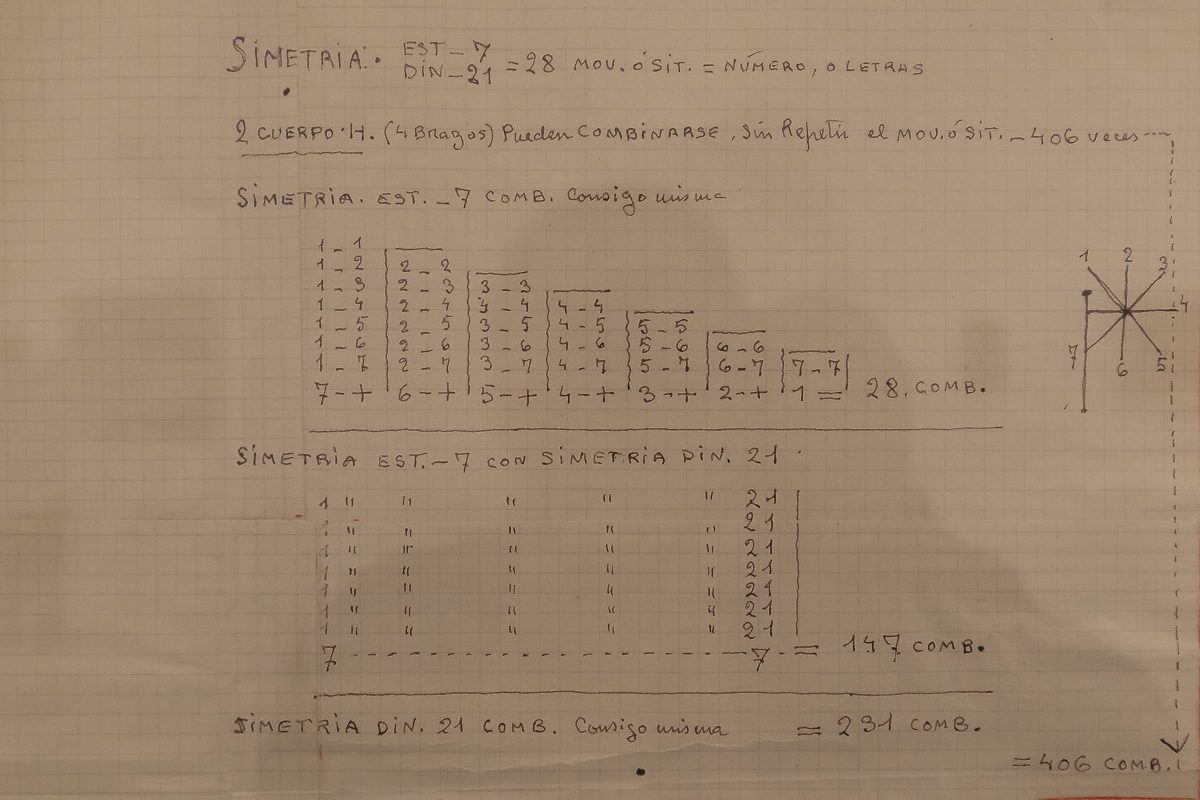 SIMETRIA. EST_7
DIN_21 = 28 MOV. Ó SIT. = NÚMERO, O LETRAS
2 CUERPO·H. (4 Brazos) Pueden COMBINARSE, sin Repetir el MOV. Ó SIT. _ 406 veces
SIMETRIA. EST. _ 7 COMB. Consigo misma
1 _ 1
1 _ 2 2 _ 2
1 _ 3 2 _ 3 3 _ 3
1 _ 4 2 _ 4 3 _ 4 4 _ 4
1 _ 5 2 _ 5 3 _ 5 4 _ 5 5 _ 5
1 _ 6 2 _ 6 3 _ 6 4 _ 6 5 _ 6 6 _ 6
1 _ 7 2 _ 7 3 _ 7 4 _ 7 5 _ 7 6 _ 7 7 _ 7
7 - + 6 - + 5 - + 4 - + 3 - + 2 - + 1 = 28. COMB.
1 2 3
4
7 6 5
SIMETRIA EST. _ 7 CON SIMETRIA DIN. 21
1 " " " " " 21
1 " " " " " 21
1 " " " " " 21
1 " " " " " 21
1 " " " " " 21
1 " " " " " 21
1 " " " " " 21
7 - - - - - - - - - - 7 - = 147 COMB.
SIMETRIA DIN. 21 COMB. Consigo misma = 231 COMB.
= 406 COMB.